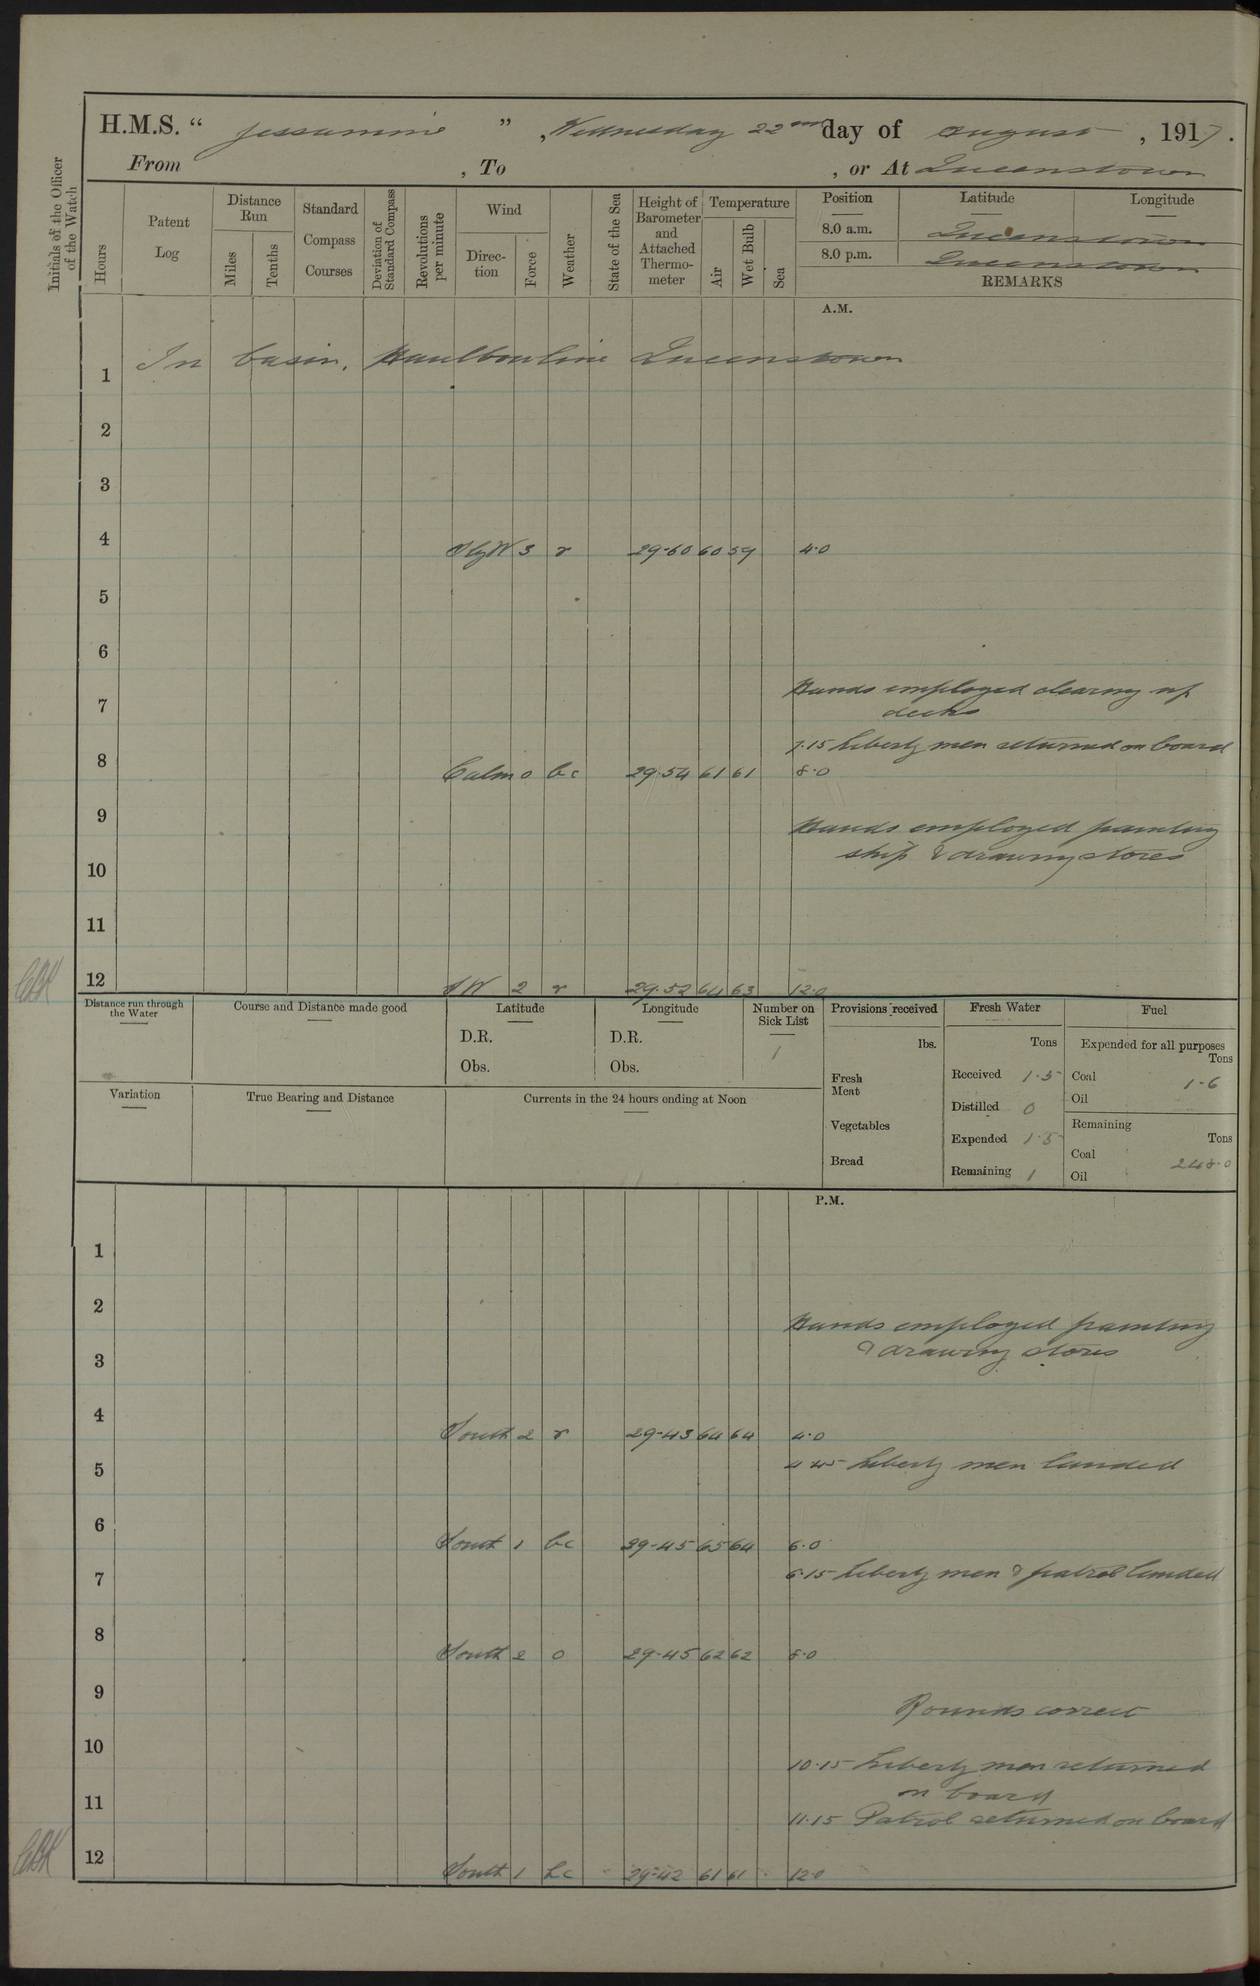 H.M.S. “ Jessamine ” , Wednesday 22nd day of August , 1917 .
From , To , or At Queenstown
Initials of the Officer of the Watch
Hours
Patent Log
Distance Run
Miles
Tenths
Standard Compass Courses
Deviation of Standard Compass
Revolutions per minute
Wind
Direction
Force
Weather
State of the Sea
Height of Barometer and Attached Thermometer
Temperature
Air
Wet Bulb
Sea
Position Latitude Longitude
8.0 a.m. Queenstown
8.0 p.m. Queenstown
REMARKS
A.M.
1 In basin, Haulbowline Queenstown
2
3
4 SbyW 3 r 29.60 60 59 4.0
5
6
7 Hands employed clearing up
decks
7.15 Liberty men returned on board
8 Calm 0 bc 29.54 61 61 8.0
9 Hands employed painting
ship & drawing stores
10
11
12 SW 2 r 29.52 64 63 12.0
Distance run through the Water
Course and Distance made good
Latitude
D.R.
Obs.
Longitude
D.R.
Obs.
Number on Sick List
1
Provisions received
lbs.
Fresh Meat
Vegetables
Bread
Fresh Water
Tons
Received 1.5
Distilled 0
Expended 1.5
Remaining 1
Fuel
Expended for all purposes
Tons
Coal 1.6
Oil
Remaining
Tons
Coal 248.0
Oil
Variation
True Bearing and Distance
Currents in the 24 hours ending at Noon
P.M.
1
2 Hands employed painting
3 & drawing stores
4 South 2 r 29.43 64 64 4.0
5 4.45 Liberty men landed
6 South 1 bc 29.45 65 64 6.0
7 6.15 Liberty men & patrol landed
8 South 2 o 29.45 62 62 8.0
9 Rounds correct
10 10.15 Liberty men returned
on board
11 11.15 Patrol returned on board
12 South 1 bc 29.42 61 61 12.0